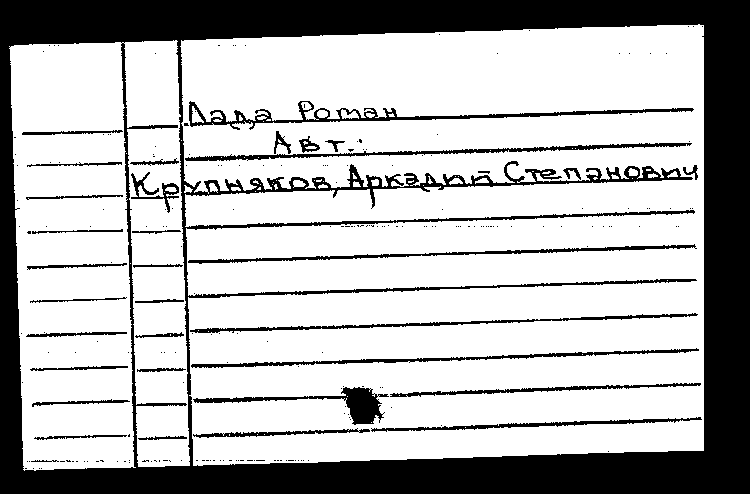 Лада Роман
Авт.:
Крупняков, Аркадий Степанович